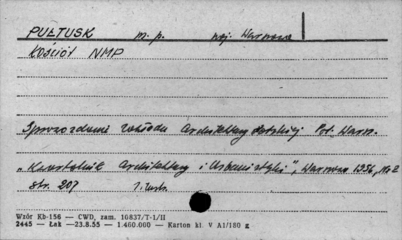 PUŁTUSK m. p. woj. Warszawa
Kościół NMP
Sprawozdanie Zakładu Architektury Polskiej Pol. Warsz.
„Kwartalnik Architektury i Urbanistyki", Warszawa 1956, No 2
str. 207 1 ilustr.
Wzór Kb-156 — CWD, zam. 10837/T-1/II
2445 — Łak — 23.8.55 — 1.460.000 — Karton kl. V A1/180 g